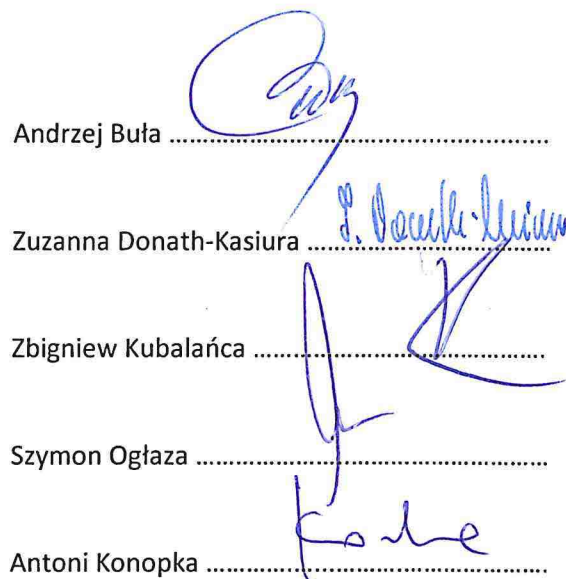 Andrzej Buła ........................................................
Zuzanna Donath-Kasiura ...................................
Zbigniew Kubalańca ...........................................
Szymon Ogłaza ....................................................
Antoni Konopka ..................................................